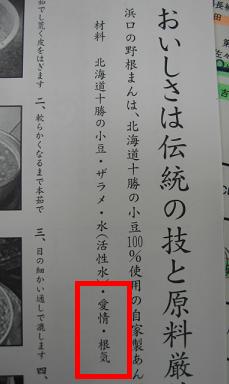 おいしさは伝統の技と原料厳
浜口の野根まんは、北海道十勝の小豆100%使用の自家製あん
材料 北海道十勝の小豆・ザラメ・水(活性水)・愛情・根気
茹でし荒く皮をはぎます 二、軟らかくなるまで本茹で 三、目の細かい通しで漉します 四、